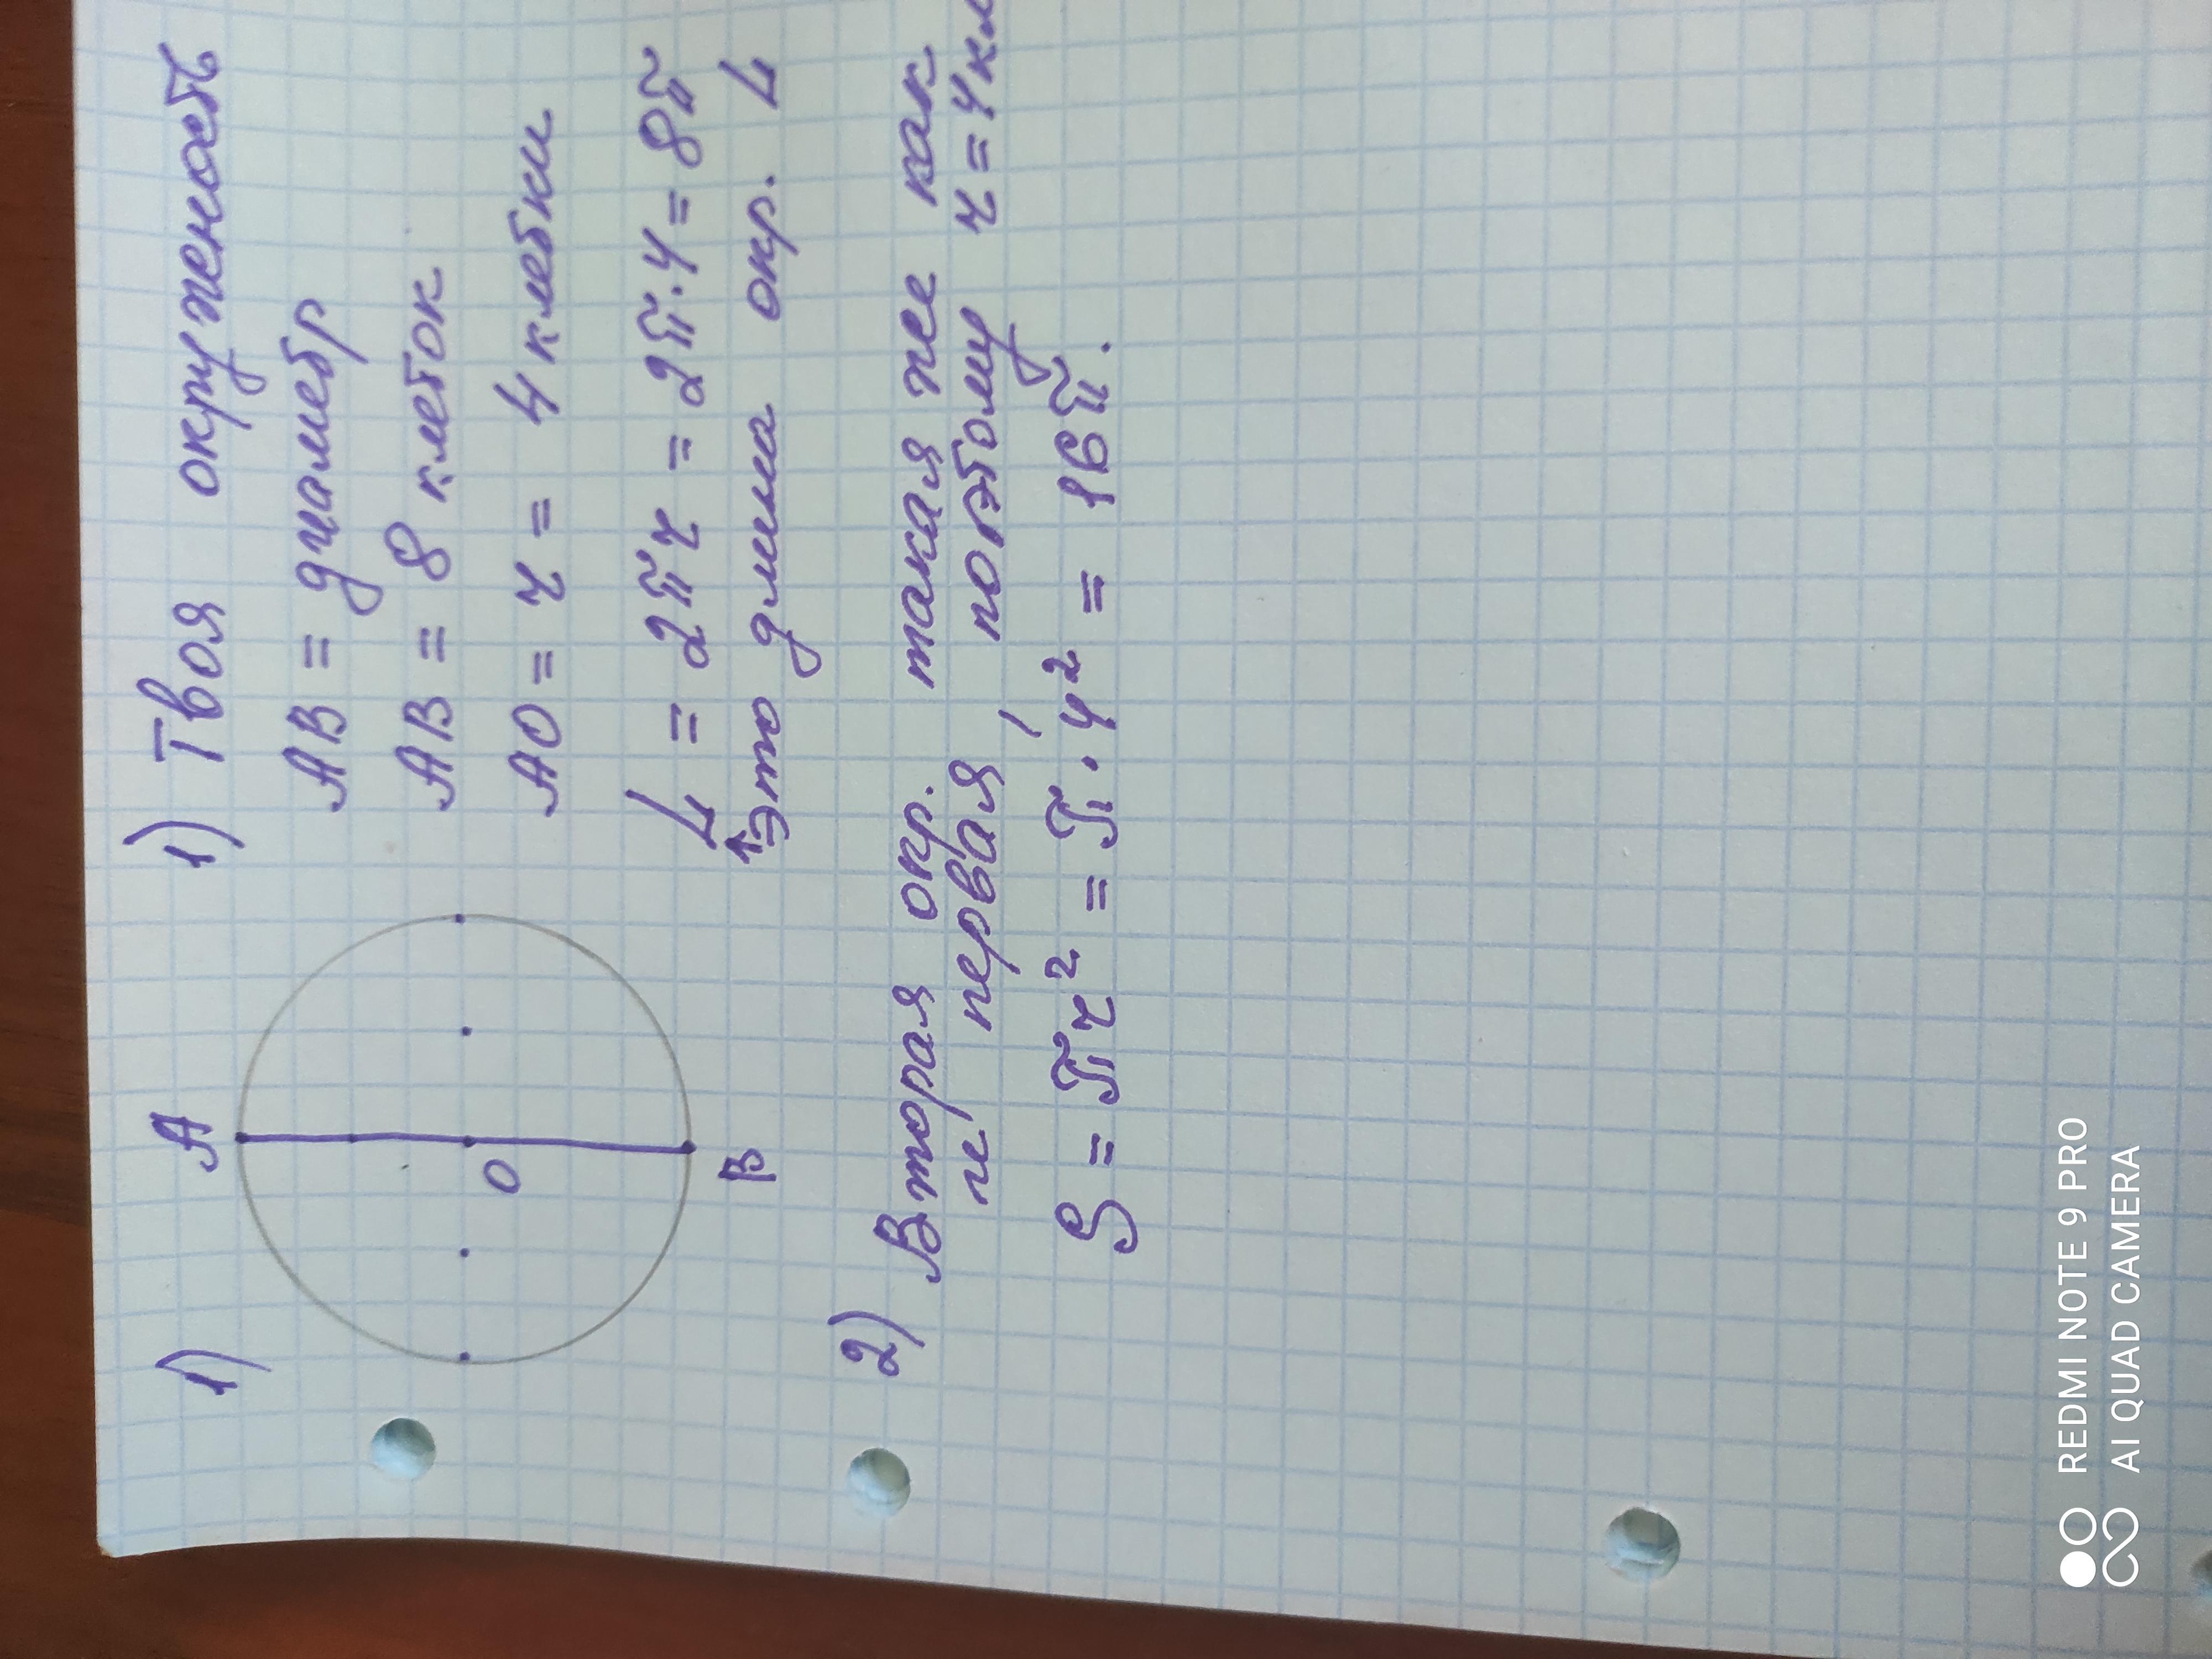 1)
A
O
B
1) Твоя окружность
AB = диаметр
AB = 8 клеток
AO = r = 4 клетки
L = 2πr = 2π·4 = 8π
↑это длина окр. L
2) Вторая окр. такая же как
и первая, поэтому r = 4 кл
S = πr² = π·4² = 16π.
REDMI NOTE 9 PRO
AI QUAD CAMERA